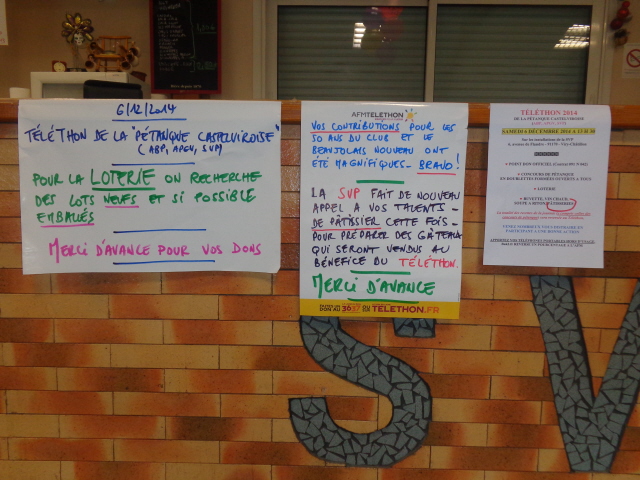 6/12/2014
TÉLÉTHON DE LA "PÉTANQUE CASTELVIROISE"
(ABP, APGV, SVP)
POUR LA LOTERIE ON RECHERCHE
DES LOTS NEUFS ET SI POSSIBLE
EMBALLÉS
MERCI D'AVANCE POUR VOS DONS
AFMTELETHON
VOS CONTRIBUTIONS POUR LES
50 ANS DU CLUB ET LE
BEAUJOLAIS NOUVEAU ONT
ÉTÉ MAGNIFIQUES - BRAVO!
LA SVP FAIT DE NOUVEAU
APPEL A VOS TALENTS -
DE PÂTISSIER CETTE FOIS -
POUR PRÉPARER DES GÂTEAUX
QUI SERONT VENDUS AU
BÉNÉFICE DU TÉLÉTHON.
MERCI D'AVANCE
DON AU 3637 TELETHON.FR
TÉLÉTHON 2014
DE LA PETANQUE CASTELVIROISE
SAMEDI 6 DÉCEMBRE 2014 A 13 H 30
CONCOURS DE PÉTANQUE
LOTERIE
BUVETTE, VIN CHAUD,
VENEZ NOMBREUX VOUS DISTRAIRE EN
PARTICIPANT A UNE BONNE ACTION
SV